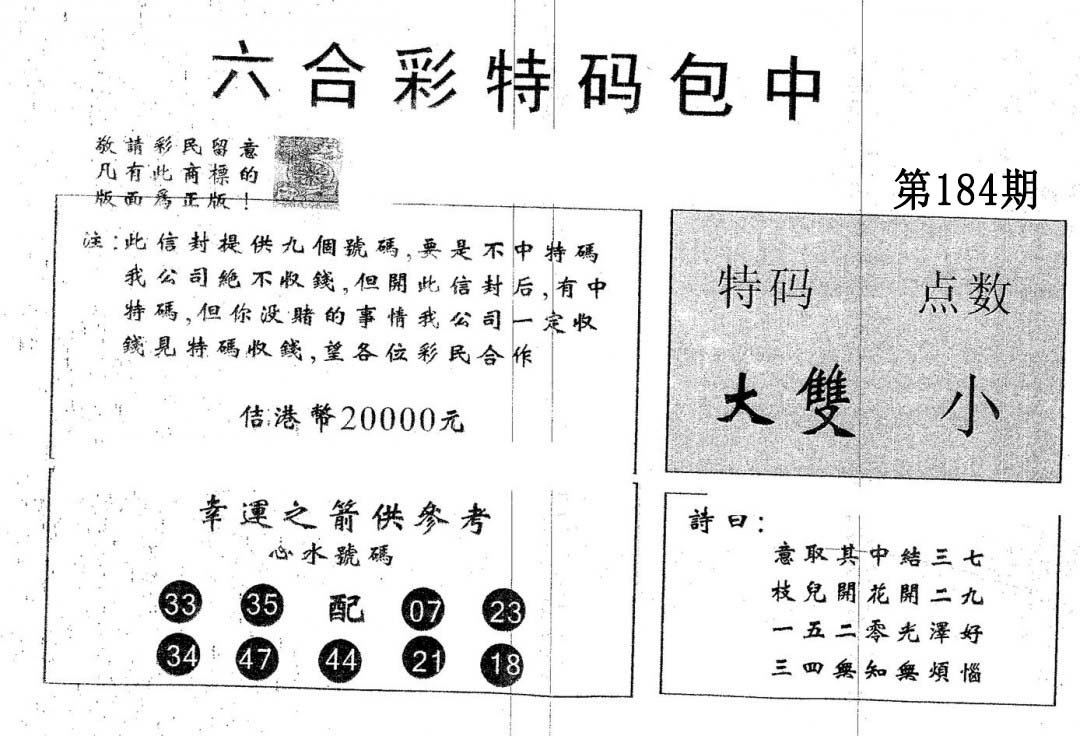 六合彩特码包中
敬請彩民留意
凡有此商標的
版面爲正版！
第184期
注:此信封提供九個號碼,要是不中特碼
我公司絶不收錢,但開此信封后,有中
特碼,但你没賭的事情我公司一定收
錢見特碼收錢,望各位彩民合作
佶港幣20000元
特码 点数
大雙 小
幸運之箭供參考
心水號碼
33 35 配 07 23
34 47 44 21 18
詩曰:
意取其中結三七
枝兒開花開二九
一五二零光澤好
三四無知無煩惱